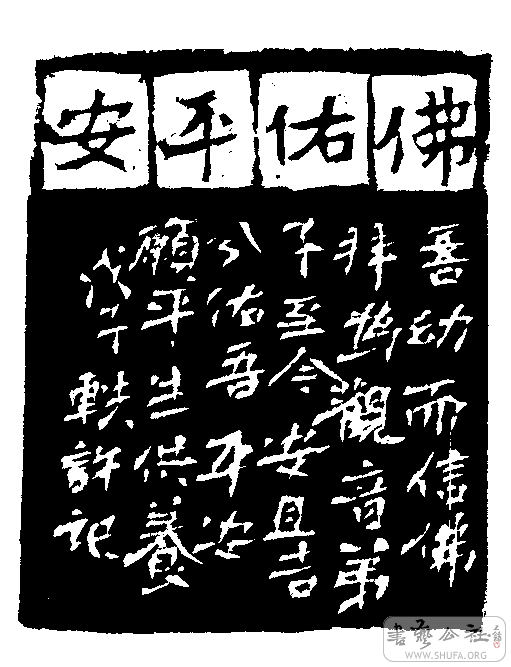 佛佑平安
吾幼而信佛
拜为觀音弟
子至今安且吉
以佑吾平安
願平生供養
戊子軼許記
書藝公社
WWW.SHUFA.ORG